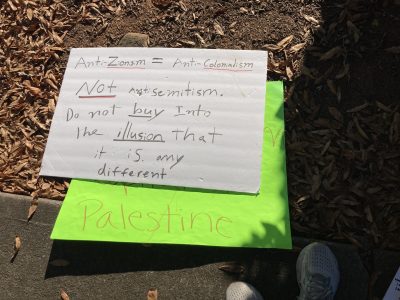 Anti-Zionsm = Anti-Colonialism
Not antisemitism.
Do not buy Into
the illusion that
it is any
different
Palestine